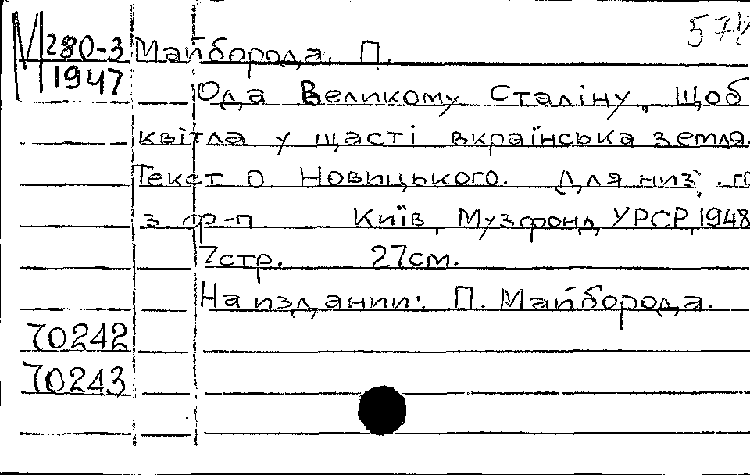 М 280-3 Майборода, П.
1947
Ода Великому Сталіну, Щоб
квітла у щасті вкраїнська земля.
Текст О. Новицького. Для низ.
з ф-п Київ, Музфонд УРСР, 1948
7стр. 27см.
На издании: П. Майборода.
70242
70243